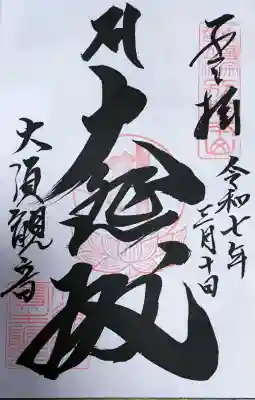 奉拝
令和七年
三月十日
大悲殿
大須観音